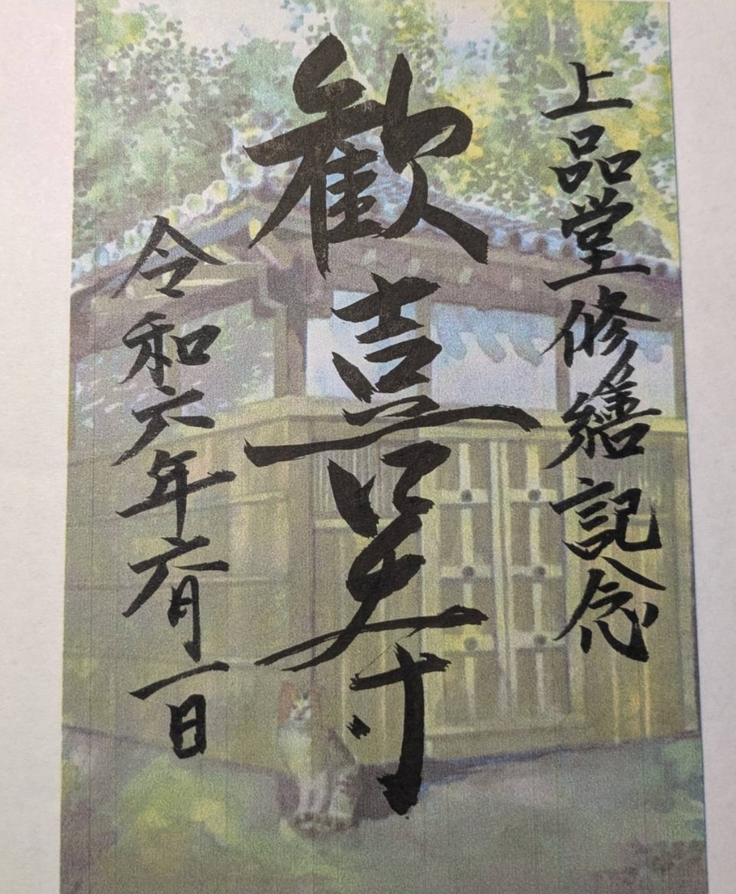 上品堂修繕記念
歓喜寺
令和六年六月一日